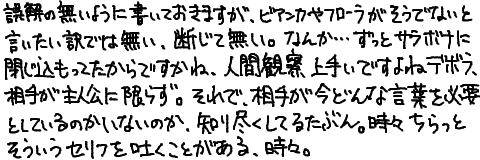 誤解の無いように書いておきますが、ビアンカやフローラがそうでないと
言いたい訳では無い、断じて無い。なんか…ずっとサラボナに
閉じ込もってたからですかね、人間観察上手いですよねデボラ、
相手が主人公に限らず。それで、相手が今どんな言葉を必要
としているのかいないのか、知り尽くしてるたぶん。時々ちらっと
そういうセリフを吐くことがある、時々。